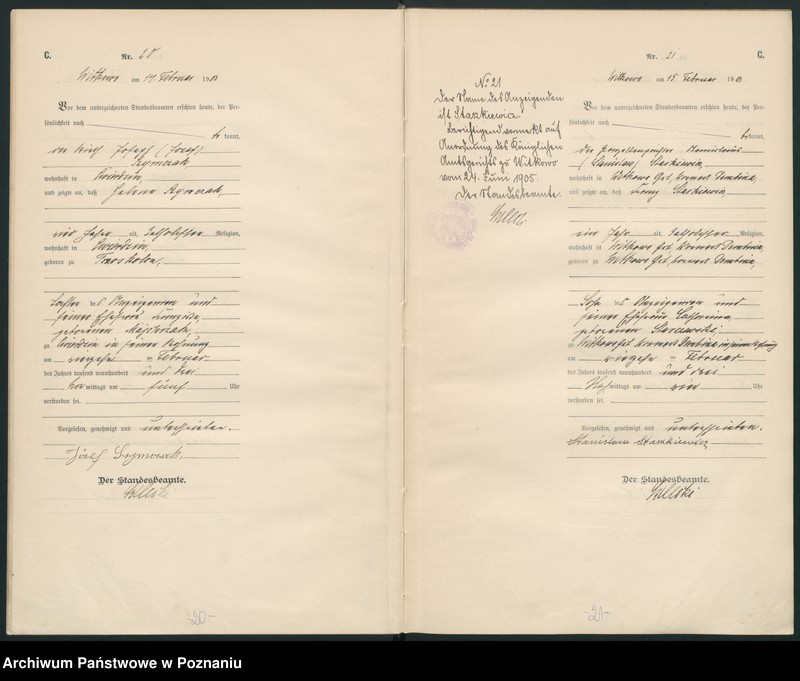 C.
Nr. 20
Witkowo am 14. Februar 1903
Vor dem unterzeichneten Standesbeamten erschien heute, der Per-
sönlichkeit nach
be kannt,
der Wirth Joseph (Józef)
Szymczak,
wohnhaft in
und zeigte an, daß Helena Szymczak,
Jahre alt, katholischer Religion,
wohnhaft in
geboren zu
Tochter des Anzeigenden und
seiner Ehefrau
geborenen
zu in seiner Wohnung
am vierzehn ten Februar
des Jahres tausend neunhundert und drei
Vor mittags um fünf Uhr
verstorben sei.
Vorgelesen, genehmigt und unterschrieben.
Józef Szymczak
Der Standesbeamte.
-20-
No 21
Der Name des Anzeigenden
ist Staszkiewicz.
Berichtigend vermerkt auf
Anordnung des Königlichen
Amtsgerichts zu Witkowo
vom 24. Juni 1905.
Der Standesbeamte.
Nr. 21
C.
Witkowo am 15. Februar 1903
Vor dem unterzeichneten Standesbeamten erschien heute, der Per-
sönlichkeit nach
be kannt,
der Stanislaus
(Stanislaw)
wohnhaft in Witkowo Gut, Vorwerk Dembina,
und zeigte an, daß
ein Jahr alt, katholischer Religion,
wohnhaft in Witkowo Gut Vorwerk Dembina,
geboren zu Witkowo Gut, Vorwerk Dembina,
Sohn des Anzeigenden und
seiner Ehefrau Catharina,
geborenen
zu Witkowo Gut Vorwerk Dembina in seiner Wohnung
am vierzehn ten Februar
des Jahres tausend neunhundert und drei
Nach mittags um vier Uhr
verstorben sei.
Vorgelesen, genehmigt und unterschrieben.
Stanisław Staszkiewicz
Der Standesbeamte.
-21-
Archiwum Państwowe w Poznaniu